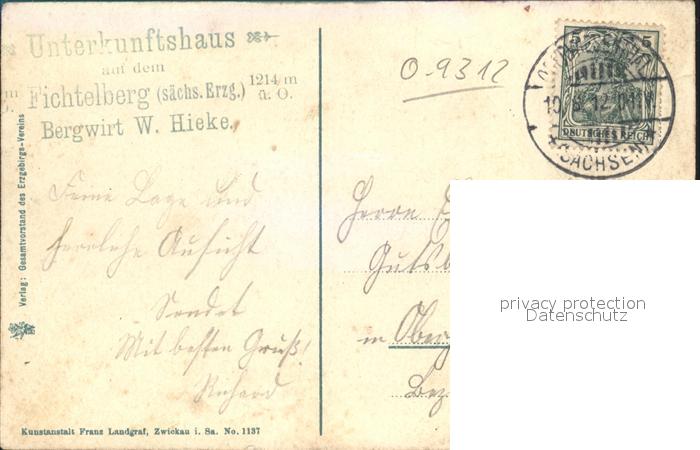 Unterkunftshaus
auf dem
Fichtelberg (sächs. Erzg.) 1214 m ü. O.
Bergwirt W. Hieke.
0.9312
5 5
10 12
DEUTSCHES REICH
(SACHSEN)
Verlag: Gesamtvorstand des Erzgebirgs-Vereins
Feine Lage und
herrliche Aussicht
Sendet
Mit besten Gruß!
Richard
Herrn
Gutsb
in Ober
Bez
privacy protection
Datenschutz
Kunstanstalt Franz Landgraf, Zwickau i. Sa. No. 1137